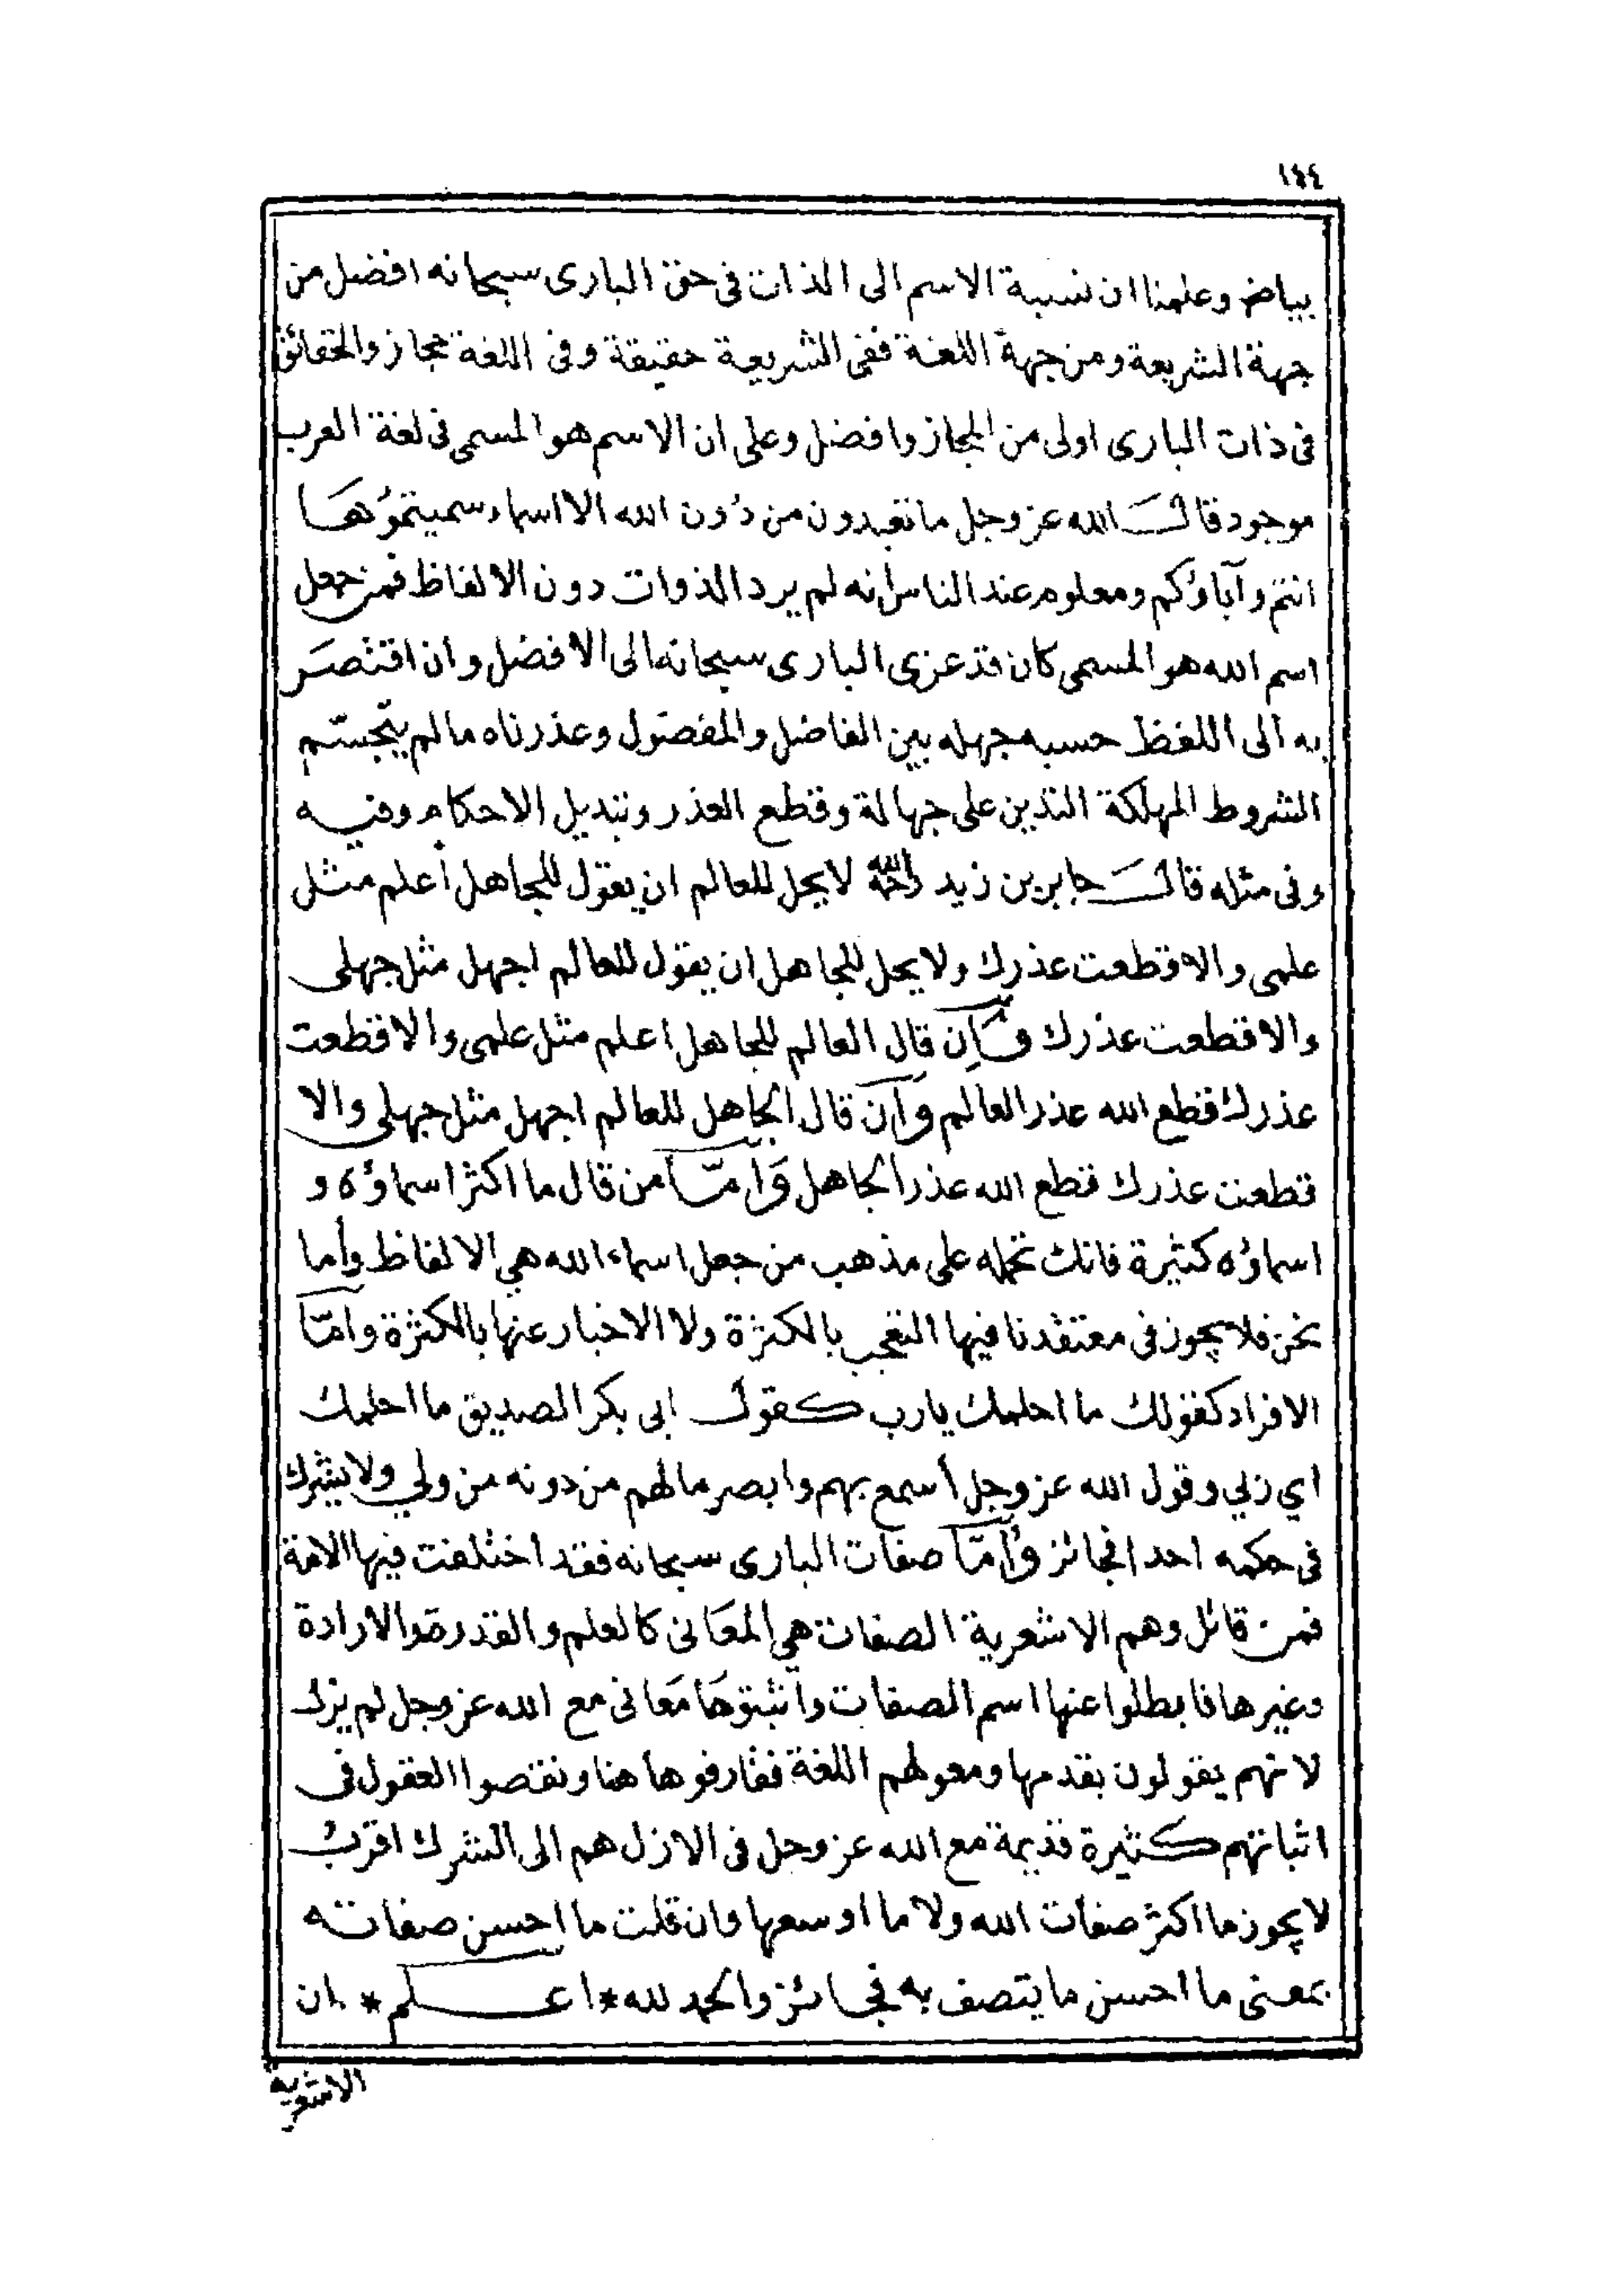 ١٤٤
بياض وعلمنا ان نسبة الاسم الى الذات فى حق البارى سبحانه افضل من
جهة الشريعة ومن جهة اللغة ففى الشريعة حقيقة وفى اللغة مجاز والحقائق
فى ذات البارى اولى من المجاز وافضل وعلى ان الاسم هو المسمى فى لغة العرب
موجود قال الله عز وجل ما تعبدون من دون الله الا اسماء سميتموها
انتم وآباؤكم ومعلوم عند الناس انه لم يرد الذوات دون الالفاظ فمن جعل
اسم الله هو المسمى كان قد عزى البارى سبحانه الى الافضل وان اقتصر
به الى اللفظ حسبه جهله بين الفاضل والمفضول وعذرناه ما لم يتجسّم
الشروط المهلكة التدين على جهالة وقطع العذر وتبديل الاحكام وفيه
وفى مثله قال جابر بن زيد رحمه الله لا يحل للعالم ان يقول للجاهل أعلم مثل
علمى والا قطعت عذرك ولا يحل للجاهل ان يقول للعالم اجهل مثل جهلى
والا قطعت عذرك فإن قال العالم للجاهل اعلم مثل علمى والا قطعت
عذرك قطع الله عذر العالم وان قال الجاهل للعالم اجهل مثل جهلى والا
قطعت عذرك قطع الله عذر الجاهل وامّا من قال ما اكثر اسماؤه و
اسماؤه كثيرة فانك تحمله على مذهب من جعل اسماء الله هي الالفاظ وأما
نحن فلا يجوز فى معتقدنا فيها التعجب بالكثرة ولا الاخبار عنها بالكثرة وامّا
الافراد كقولك ما احلمك يارب كقول ابى بكر الصديق ما احلمك
اي زلي وقول الله عز وجل أسمع بهم وابصر ما لهم من دونه من ولي ولا يشرك
فى حكمه احدا فجائز وأمّا صفات البارى سبحانه فقد اختلفت فيها الامة
فمن قائل وهم الاشعرية الصفات هي المعانى كالعلم والقدرة والارادة
وغيرها فابطلوا عنها اسم الصفات وأثبتوها معانى مع الله عز وجل لم يزل
لانهم يقولون بقدمها ومعولهم اللغة ففارقوها هنا ونقضوا العقول فى
اثباتهم كثيرة قديمة مع الله عز وجل فى الازل هم الى الشرك اقرب
لا يجوز ما اكثر صفات الله ولا ما اوسعها وان قلت ما احسن صفاته
بمعنى ما احسن ما يتصف به فجائز والحمد لله * اعلم * ان
الاشعرية